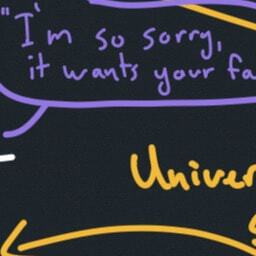 "I'm so sorry,
it wants your fa
Univer